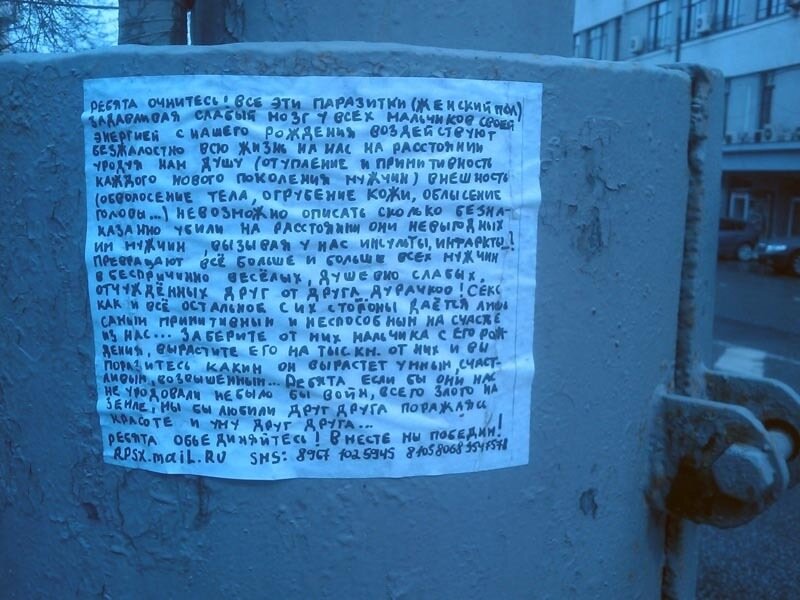 РЕБЯТА ОЧНИТЕСЬ! ВСЕ ЭТИ ПАРАЗИТКИ (ЖЕНСКИЙ ПОЛ)
ЗАДАВЛИВАЯ СЛАБЫЙ МОЗГ У ВСЕХ МАЛЬЧИКОВ СВОЕЙ
ЭНЕРГИЕЙ С НАШЕГО РОЖДЕНИЯ ВОЗДЕЙСТВУЮТ
БЕЗЖАЛОСТНО ВСЮ ЖИЗНЬ НА НАС НА РАССТОЯНИИ
УРОДУЯ НАМ ДУШУ (ОТУПЛЕНИЕ И ПРИМИТИВНОСТЬ
КАЖДОГО НОВОГО ПОКОЛЕНИЯ МУЖЧИН) ВНЕШНОСТЬ
(ОБВОЛОСЕНИЕ ТЕЛА, ОГРУБЕНИЕ КОЖИ, ОБЛЫСЕНИЕ
ГОЛОВЫ...) НЕВОЗМОЖНО ОПИСАТЬ СКОЛЬКО БЕЗНА-
КАЗАННО УБИЛИ НА РАССТОЯНИИ ОНИ НЕВЫГОДНЫХ
ИМ МУЖЧИН, ВЫЗЫВАЯ У НАС ИНСУЛЬТЫ, ИНФАРКТЫ..!
ПРЕВРАЩАЮТ ВСЁ БОЛЬШЕ И БОЛЬШЕ ВСЕХ МУЖЧИН
В БЕСПРИЧИННО ВЕСЁЛЫХ, ДУШЕВНО СЛАБЫХ,
ОТЧУЖДЁННЫХ ДРУГ ОТ ДРУГА ДУРАЧКОВ! СЕКС
КАК И ВСЁ ОСТАЛЬНОЕ С ИХ СТОРОНЫ ДАЁТСЯ ЛИШЬ
САМЫМ ПРИМИТИВНЫМ И НЕСПОСОБНЫМ НА СЧАСТЬЕ
ИЗ НАС... ЗАБЕРИТЕ ОТ НИХ МАЛЬЧИКА С ЕГО РОЖ-
ДЕНИЯ, ВЫРАСТИТЕ ЕГО НА ТЫС. КМ. ОТ НИХ И ВЫ
ПОРАЗИТЕСЬ КАКИМ ОН ВЫРАСТЕТ УМНЫМ, СЧАСТ-
ЛИВЫМ, ВОЗВЫШЕННЫМ... РЕБЯТА ЕСЛИ БЫ ОНИ НАС
НЕ УРОДОВАЛИ НЕБЫЛО БЫ ВОЙН, ВСЕГО ЗЛОГО НА
ЗЕМЛЕ, МЫ БЫ ЛЮБИЛИ ДРУГ ДРУГА ПОРАЖАЯСЬ
КРАСОТЕ И УМУ ДРУГ ДРУГА...
РЕБЯТА ОБЪЕДИНЯЙТЕСЬ! ВМЕСТЕ МЫ ПОБЕДИМ!
RPSX.maiL.RU SMS: 8967 1025945